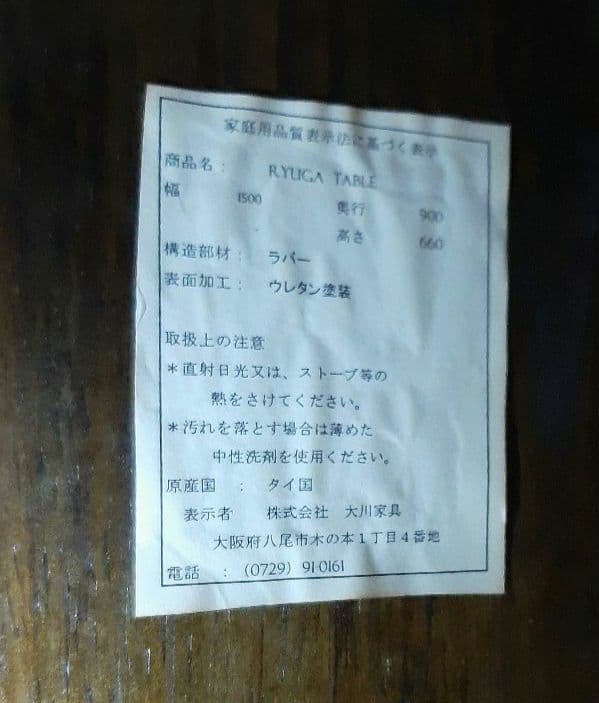 家庭用品質表示法に基づく表示
商品名： RYUGA TABLE
幅 1500 奥行 900
高さ 660
構造部材： ラバー
表面加工： ウレタン塗装
取扱上の注意
＊直射日光又は、ストーブ等の
熱をさけてください。
＊汚れを落とす場合は薄めた
中性洗剤を使用ください。
原産国 ： タイ国
表示者 株式会社 大川家具
大阪府八尾市木の本1丁目4番地
電話 ：（0729）91-0161